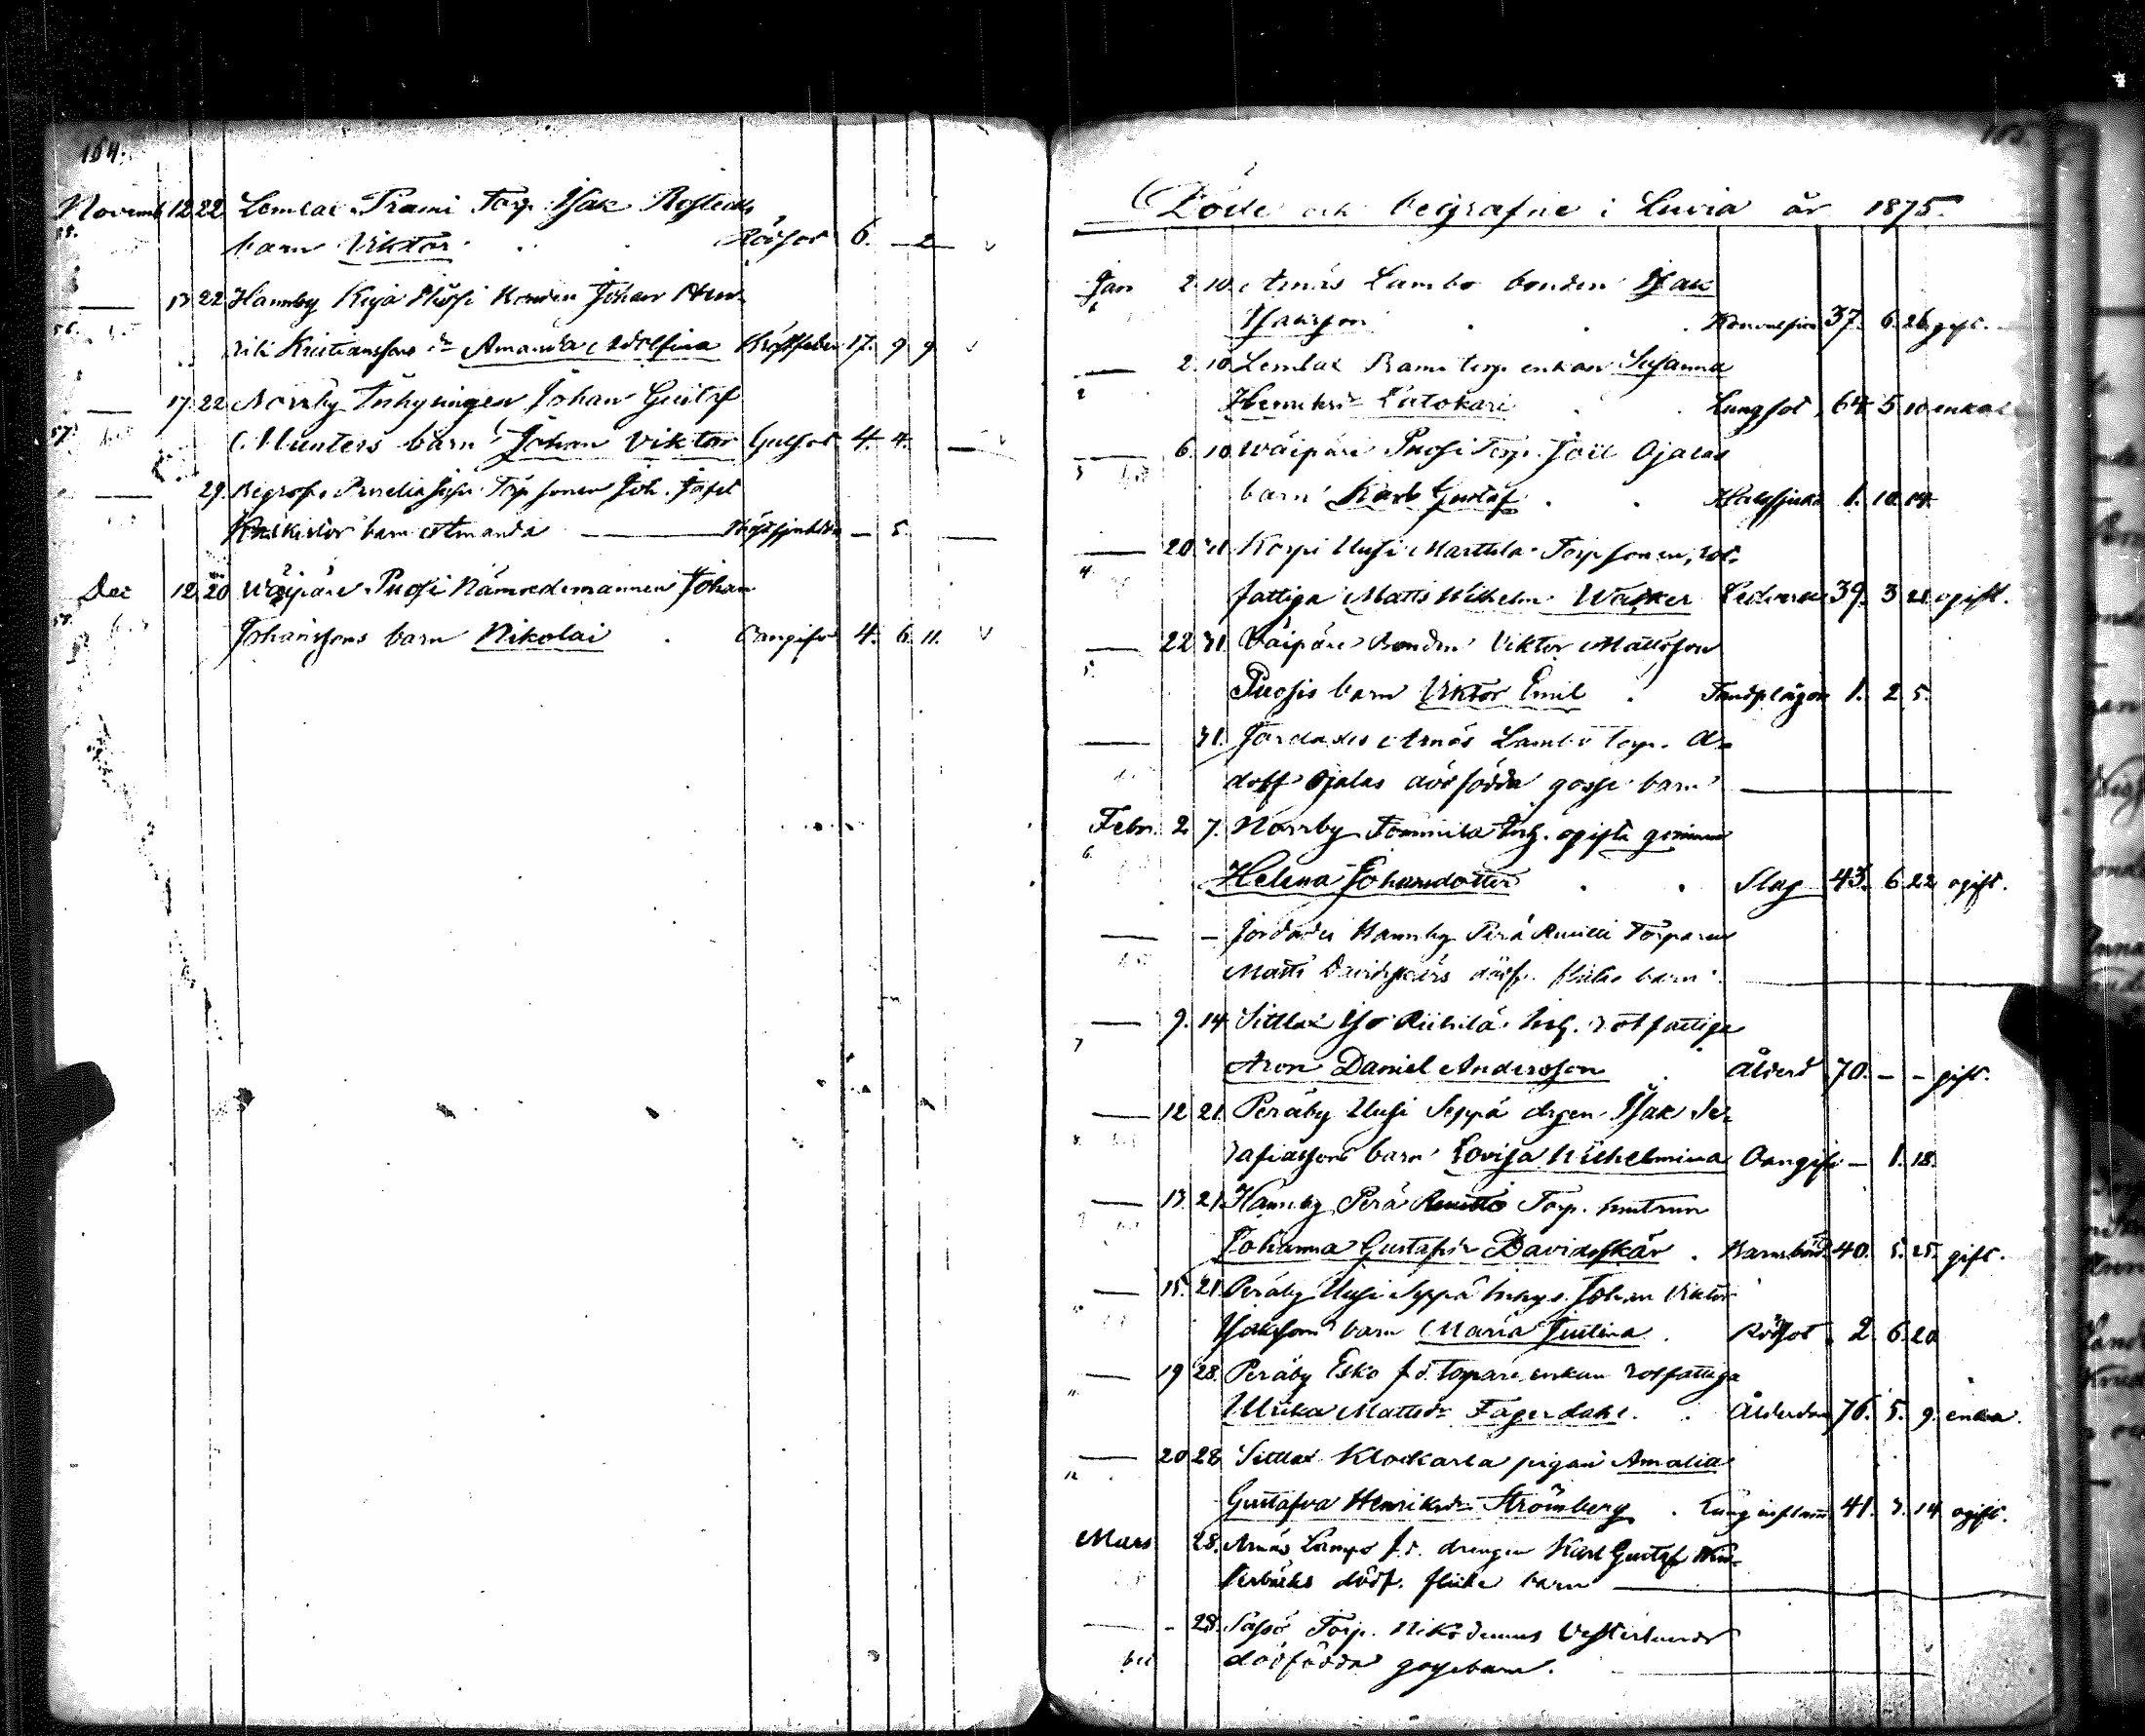 164.
Novemb 12 22 Lemlax Prami Torp. Isak Rostedts
55. barn Viktor Rödsot 6. — 2
— 13 22 Hannby Keja Bonden Johan Hen-
56. Kristianssons dr Amanda Adolfina 17. 9 9
— 17. 22 Norrby Inhysingen Johan Gustaf
57. Munters barn Johan Viktor Gulsot 4. 4. —
— 29. Begrofs Torpsonen Joh.
barn Amanda — — 5. —
Dec 12 20 Wäipäre Puosi Nämndemannen Johan
58. Johanssons barn Nikolai Oangifvet 4. 6. 11.
165
Döde och begrafne i Luvia år 1875.
Jan 2. 10. Arnäs Lambo bonden Isak
1 Isaksson 37. 6. 26 gift.
— 2. 10 Lemlax Prami torp. enkan Susanna
2 Henriksdr Latokari Lungsot 64 5 10 enka
— 6. 10 Wäipäre Puosi Torp. Joel Ojalas
3 barn Karl Gustaf Halssjuka 1. 10. 14.
— 20 31 Korpi Uusi Marttila Torpsonen, rot-
4 fattiga Matts Wilhelm Wacker Ledverk 39. 3 21 ogift.
— 22 31 Väipäre Bonden Viktor Mattsson
5. Puosis barn Viktor Emil Tandplågor 1. 2. 5.
— 31. Jordades Arnäs Lambo Torp. A-
dolf Ojalas dödfödda gosse barn —
Febr. 2 7. Norrby Tommila Inh. ogifta qvinnan
6. Helena Johansdotter Slag 43. 6 22 ogift.
— – Jordades Hannby Perä Torparen
Matts Davidskärs dödf. flicke barn —
— 9. 14 Sittlax Iso Riihilä Inh. rotfattige
7 Aron Daniel Andersson Ålderd 70. – – gift.
— 12 21 Peräby Uusi Seppä drgen Isak Se-
8. rafiassons barn Lovisa Wilhelmina Oangifv – 1. 18.
— 13. 21 Hannby Perä Torp. hustrun
9 Johanna Gustafsdr Davidskär Barnsbörd 40. 5. 25. gift.
— 15. 21. Peräby Uusi Seppä Inhys. Johan Viktor
10 Isakssons barn Maria Justina Rödsot 2 6 20
— 19 28. Peräby Esko f.d. torpare enkan rotfattiga
11 Ulrika Mattsdr Fagerdahl Ålderdom 76. 5. 9. enka.
— 20 28 Sittlax Klockarla pigan Amalia
12 Gustafva Henriksdr Strömberg Lunginflam 41. 3. 14 ogift.
Mars 28. Arnäs Lampo f.d. drengen Karl Gustaf
dödf. flicke barn —
— – 28. Sassö Torp. Nikodemus Vesterlunds
dödfödda gossebarn. —